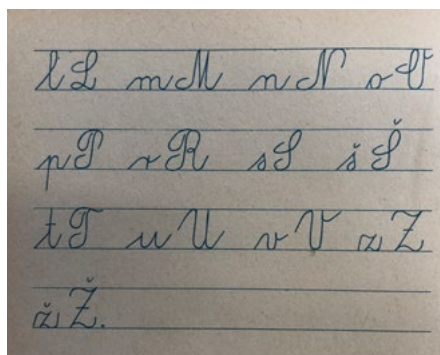 l L m M n N o O
p P r R s S š Š
t T u U v V z Z
ž Ž.